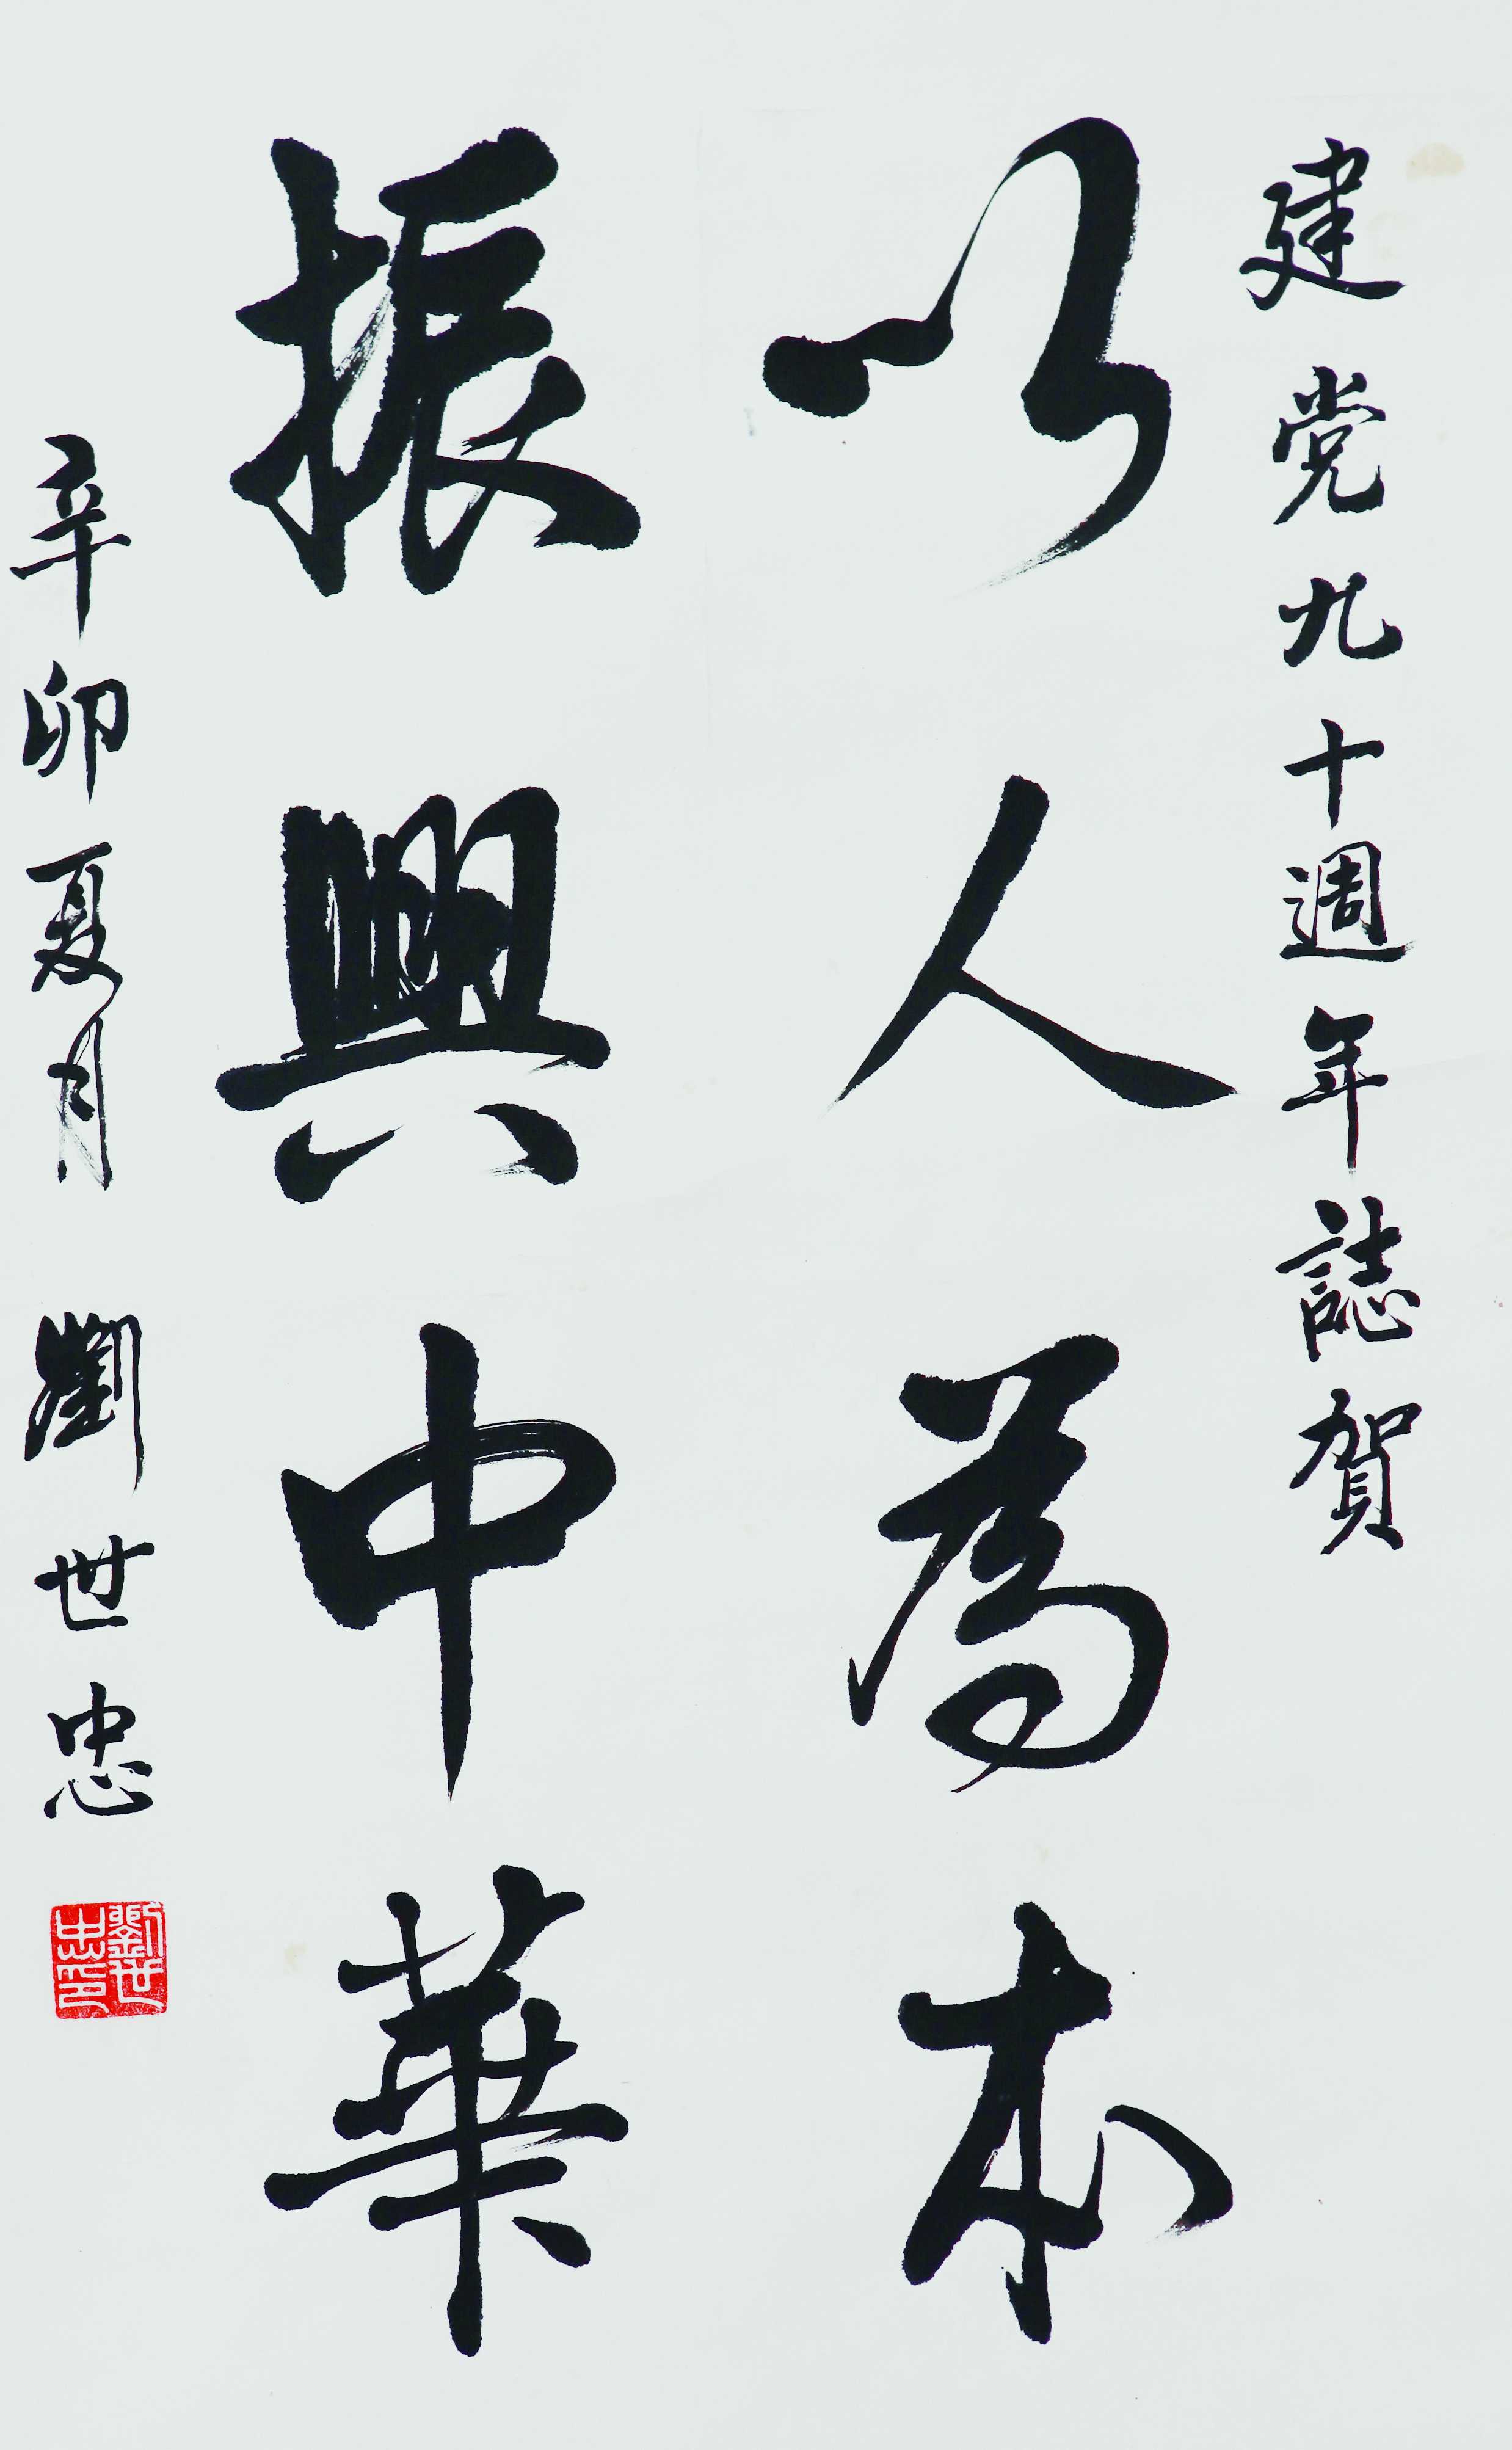 建党九十週年誌賀
以人為本
振興中華
辛卯夏月 劉世忠
劉世忠印